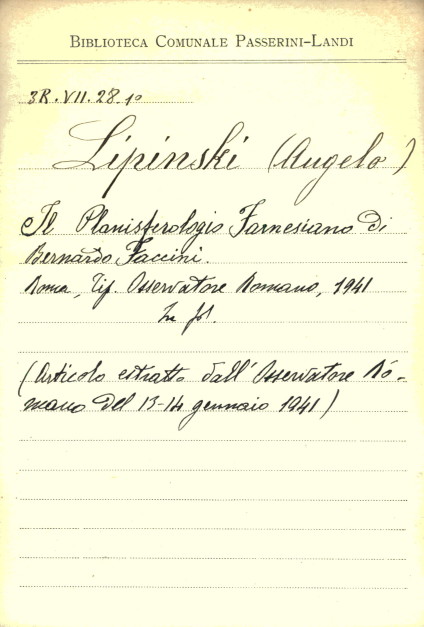 BIBLIOTECA COMUNALE PASSERINI-LANDI
3R.VII.28.1º
Lipinski (Angelo)
Il Planisferologio Farnesiano di
Bernardo Faccini.
Roma, Tip. Osservatore Romano, 1941
In fol.
(Articolo estratto dall'Osservatore Ro-
mano del 13-14 gennaio 1941)